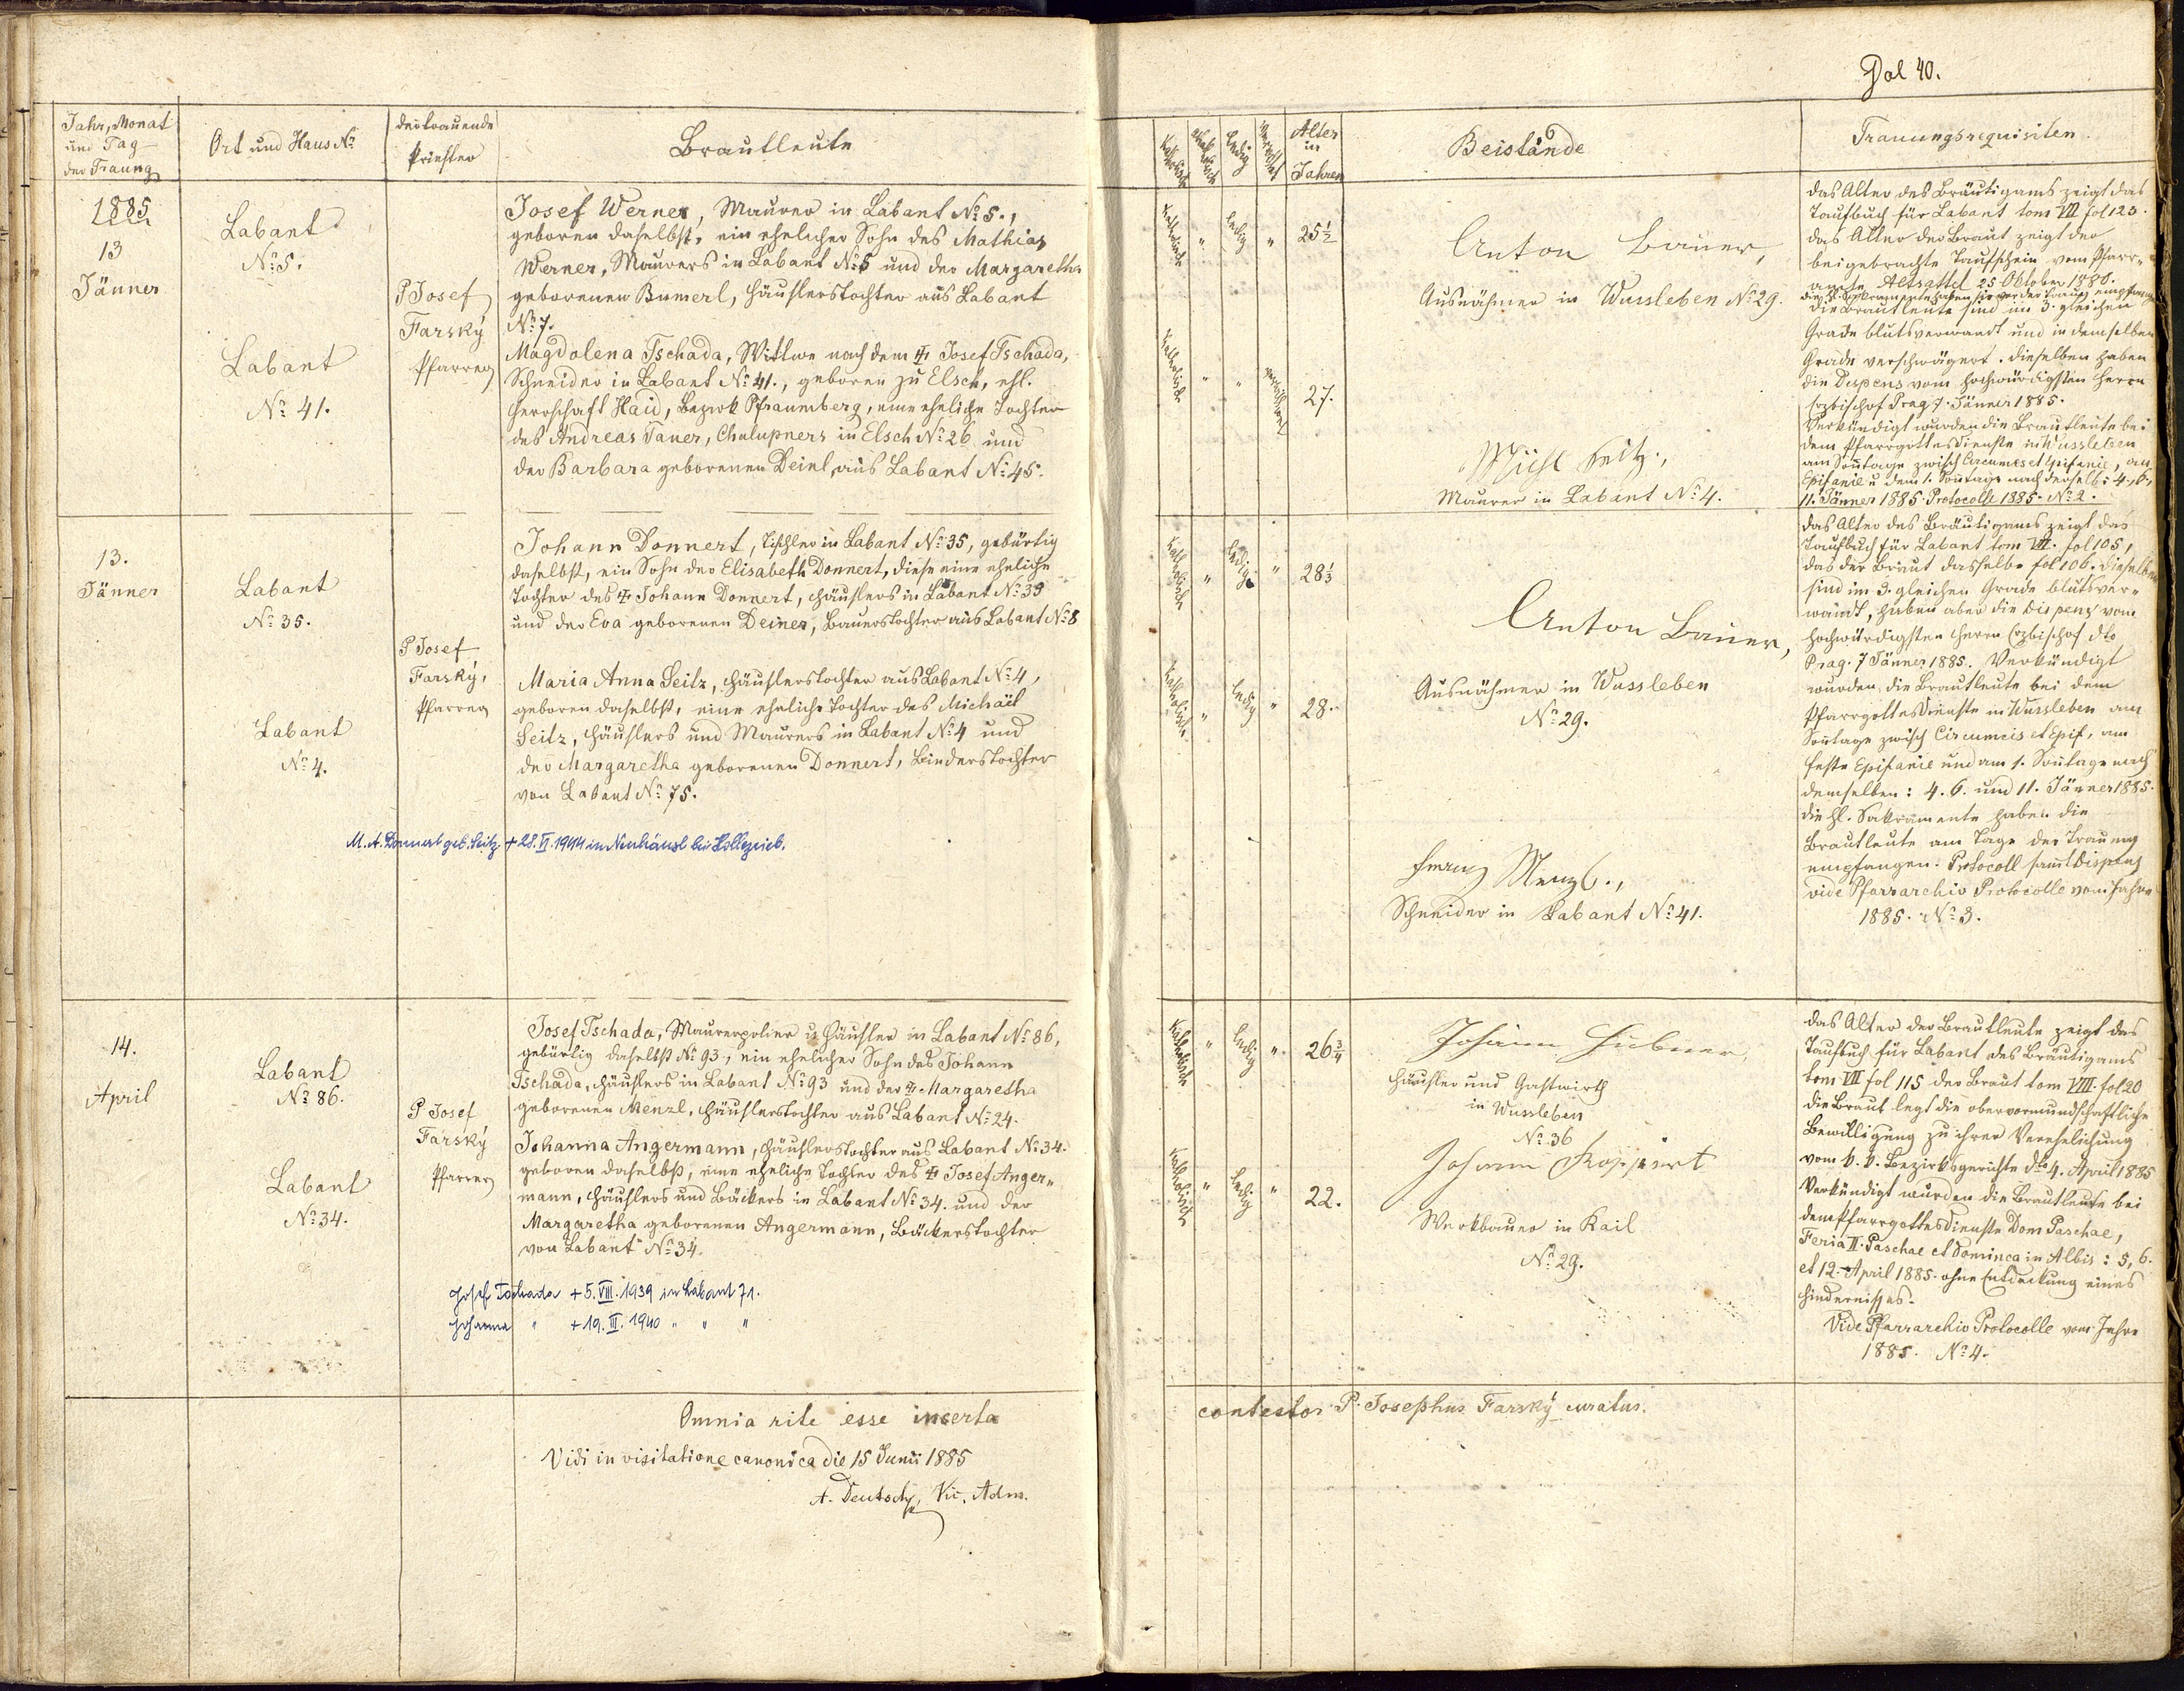 Fol 40.
Jahr, Monat
und Tag
der Trauung
Ort und Haus No
der trauende
Priester
Brautleute
Katholisch
Akatholisch
Ledig
Verwittwet
Alter
in
Jahren
Beistände
Trauungsrequisiten
1885
13
Jänner
Labant
No 5.
Labant
No 41.
P Josef
Farský
Pfarrer
Josef Werner, Maurer in Labant No 5.,
geboren daselbst, ein ehelicher Sohn des Mathias
Werner, Maurers in Labant No 5 und der Margaretha
geborenen Bumerl, Häuslerstochter aus Labant
No 7.
Magdolena Tschada, Wittwe nach dem Josef Tschada,
Schneider in Labant No 41., geboren zu Elsch,
Herrschaft Haid, Bezirk Pfraumberg, eine eheliche Tochter
des Andreas Tauer, Chalupners in Elsch No 26 und
der Barbara geborenen Deinl aus Labant No 45.
Katholisch " ledig " 25½
Katholisch " " verwittwet 27.
Anton Bauer,
Ausnähmer in Wussleben No 29.
Seitz,
Maurer in Labant No 4.
das Alter des Bräutigams zeigt das
Taufbuch für Labant tom VII fol 123.
das Alter der Braut zeigt der
beigebrachte Taufschein vom Pfarr-
amte Altsattel 25 Oktober 1880.
die hl. Sakramente haben sie vor der Trauung empfangen
die Brautleute sind im 3. gleichen
Grade blutsverwandt und in demselben
Grade verschwägert. dieselben haben
die Dispens vom hochwürdigsten Herrn
Erzbischof Prag 7. Jänner 1885.
Verkündigt wurden die Brautleute bei
dem Pfarrgottesdienste in Wussleben
am Sontage zwisch Circumcis et Epifanie, an
Epifanie u dem 1. Sontage nach derselb: 4., 6.,
11. Jänner 1885. Protocolle 1885. No 2.
13.
Jänner
Labant
No 35.
Labant
No 4.
P Josef
Farský,
Pfarrer
Johann Donnert, Tischler in Labant No 35, gebürtig
daselbst, ein Sohn der Elisabeth Donnert, diese eine eheliche
Tochter des Johann Donnert, Häuslers in Labant No 39
und der Eva geborenen Deiner, Bauerstochter aus Labant No 8
Maria Anna Seitz, Häuslerstochter aus Labant No 4,
geboren daselbst, eine eheliche Tochter des Michäel
Seitz, Häuslers und Maurers in Labant No 4 und
der Margaretha geborenen Donnert, Binderstochter
von Labant No 75.
M. A. Donnert geb. Seitz + 28. VI. 1944 in Neuhäusl bei
Katholisch " ledig " 28⅓
Katholisch " ledig " 28.
Anton Bauer,
Ausnähmer in Wussleben
No 29.
Menzl.,
Schneider in Labant No 41.
das Alter des Bräutigams zeigt das
Taufbuch für Labant tom VII. fol 105,
das der Braut dasselbe fol 106. dieselben
sind im 3. gleichen Grade blutsver-
wandt, haben aber die Dispens vom
hochwürdigsten Herrn Erzbischof dto
Prag. 7 Jänner 1885. Verkündigt
wurden die Brautleute bei dem
Pfarrgottesdienste in Wussleben am
Sontage zwisch Circumcis et Epif, am
Feste Epifanie und am 1. Sontage nach
demselben: 4. 6. und 11. Jänner 1885.
die hl. Sakramente haben die
Brautleute am Tage der Trauung
empfangen. Protocoll samt Dispens
vide Pfarrarchiv Protocolle vom Jahre
1885. No 3.
14.
April
Labant
No 86.
Labant
No 34.
P Josef
Farský
Pfarrer
Josef Tschada, Maurerpolier u Häusler in Labant No 86,
gebürtig daselbst No 93, ein ehelicher Sohn des Johann
Tschada, Häuslers in Labant No 93 und der Margaretha
geborenen Menzl, Häuslerstochter aus Labant No 24.
Johanna Angermann, Häuslerstochter aus Labant No 34.
geboren daselbst, eine eheliche Tochter des Josef Anger-
mann, Häuslers und Bäckers in Labant No 34. und der
Margaretha geborenen Angermann, Bäckerstochter
von Labant No 34.
Josef Tschada + 5. VIII. 1939 in Labant 71.
Johanna " + 19. III. 1940 " " "
Katholisch " ledig " 26¾
Katholisch " ledig " 22.
Johann Hübner,
Häusler und Gastwirth
in Wussleben
No 36
Johann
Werkbauer in Kail
No 29.
das Alter der Brautleute zeigt das
Taufbuch für Labant des Bräutigams
tom VII fol 115 der Braut tom VIII. fol 20
die Braut legt die obervormundschaftliche
Bewilligung zu ihrer Verehelichung
vom k. k. Bezirksgerichte dto 4. April 1885
Verkündigt wurden die Brautleute bei
dem Pfarrgottesdienste Dom Paschae,
Feria II. Paschae et Dominca in Albis: 5, 6.
et 12. April 1885. ohne Entdeckung eines
Hindernisses.
Vide Pfarrarchiv Protocolle vom Jahre
1885. No 4.
Omnia rite esse inserta contestor P. Josephus Farský curatus.
Vidi in visitatione canonica die 15 Junii 1885
A. Deutsch, Vic. Adm.